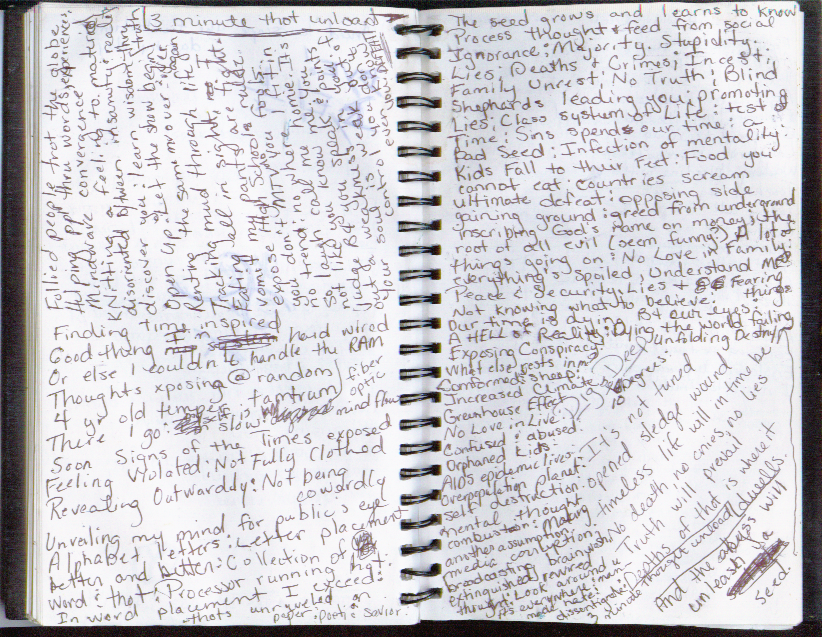 3 minute thot unload
Follied people trot the globe
Helping ppl thru words, experiences.
Mindwave convergence
Knitting a feeling to
disoriented between insanity & reality
discover you learn wisdom thru truth
Open up, let the show begin
the same over
Renting mud thru life
Tracking in sight,
Eating all my pants are tight.
vomit High School nude.
expose MTV forgets
you don't you fit in
no trend nowhere home. This
so lash out call me you
not like you know me & point
Judge B4 you speak
but a yourself weak
your soul is to everyone
Finding time inspired
Good thing I'm hard wired
Or else I couldn't handle the RAM
Thoughts xposing @ random
4 yr old temper tantrum
fiber
optic
There I go: if is slow: mind flow
Soon Signs of the Times exposed
Feeling Violated: Not Fully Clothed
Revealing Outwardly: Not being
cowardly
Unveiling my mind for public's eye
Alphabet letters: Letter placement
better and better: Collection of
word: thot: Processor running hot:
In word placement I exceed:
thots unraveled on
paper: poetic savior.
The seed grows and learns to know
Process thought & feed from social
Ignorance: Majority. Stupidity.
Lies: Deaths & Crimes; Incest;
Family Unrest; No Truth; Blind
Shephards leading you, promoting
Lies; Class system of Life: test of
Time: Sins spend our time: a
Bad Seed: Infection of mentality:
Kids Fall to their Feet: Food you
cannot eat: Countries scream
ultimate defeat: opposing side
gaining ground: greed from underground
inscribing God's name on money: the
root of all evil (seem funny?) A lot of
things going on: No Love in Family:
everything's spoiled, Understand Me?
Peace & Security: Lies & Fearing
Not knowing what to believe: things
Our time is dying B4 our eyes:
A HELL of Reality: Dying the world failing
Exposing Conspiracy: Unfolding Destiny
What else rests in me
Dig Deep
Conformed shape:
Increased Climate Degrees:
Greenhouse Effect 10
No Love in Live:
Confused & abused
Orphaned kids:
AIDS epidemic lives
Overpopulation planet
self destruction
mental thought
combustion: Making
another assumption
media corruption
broadcasting brainwash
extinguished rewired
thought Look around
it's everywhere: man
made hate:
disorientate
3 minute thought unload
It's not tuned
opened sledge wound
timeless life will in time be
No death, no cries, no lies
Truth will prevail
Depths of thot is where it
dwells.
And the abyss will
unleash a
seed.